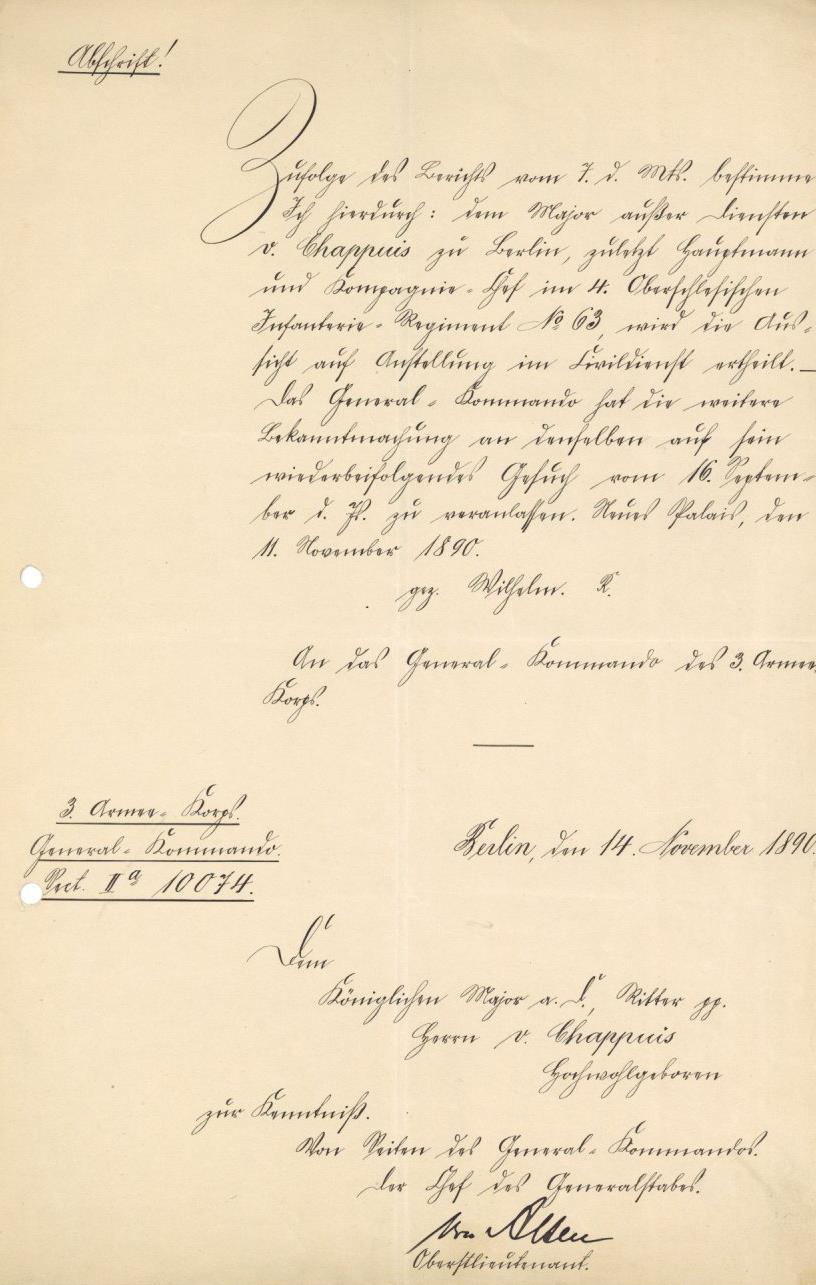 Abschrift!
Zufolge des Berichts vom 7. d. Mts. bestimme
Ich hierdurch: dem Major außer Diensten
v. Chappuis zu Berlin, zuletzt Hauptmann
und Kompagnie-Chef im 4. Oberschlesischen
Infanterie-Regiment No 63, wird die Aus-
sicht auf Anstellung im Civildienst ertheilt.—
Das General-Kommando hat die weitere
Bekanntmachung an denselben auf sein
wiederbeifolgendes Gesuch vom 16. Septem-
ber d. Js. zu veranlassen. Neues Palais, den
11. November 1890.
gez. Wilhelm. R.
An das General-Kommando des 3. Armee
Korps.
3. Armee-Korps.
General-Kommando.
Sect. IIa 10074.
Berlin, den 14. November 1890.
Dem
Königlichen Major a. D., Ritter pp.
Herrn v. Chappuis
Hochwohlgeboren
zur Kenntniß.
Von Seiten des General-Kommandos.
Der Chef des Generalstabes.
von Alten
Oberstlieutenant.